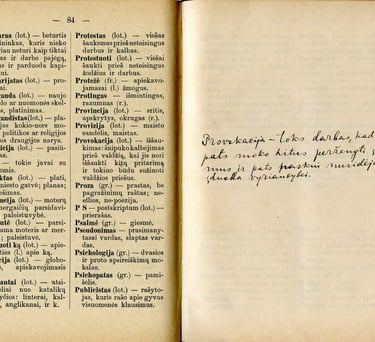 — 84 —
aras (lot.) — beturtis
ininkas, kuris nieko
turi neturi kaip tiktai
ias ir darbo pajėgą,
s ir parduoda kapi-
ui.
arijatas (lot.) — pro-
anda (lot.) — naujo
o ar nuomonės skel-
, platinimas.
andistas (lot.) — pla-
jas kokios-nors mo-
politikos ar religijos
s draugijos narys.
ija (lot.) — pasiti-
— tokie javai su
omis.
tas (lot.) — platus,
miesto gatvė; planas;
ėsimas.
ucija (lot.) — moterų
mergaičių parsidavi-
paleistuvybė.
utė (lot.) — parsi-
ma moteris ar mer-
; paleistuvė.
uoti ką (lot.) — apie-
i (l.) apie ką.
cija (lot.) — globo-
apiekavojimasis
antai (lot.) — atsi-
ėliai nuo katalikų
yčios: liuterai, kal-
, anglikanai, ir k.
Protestas (lot.) — viešas
šauksmas prieš neteisingus
darbus ir kalbas.
Protestuoti (lot.) — viešai
šaukti prieš neteisingus
žodžius ir darbus.
Protežė (fr.) — apiekavo-
jamasai (l.) žmogus.
Protingas — išmintingas,
razumnas (r.).
Provincija (lot.) — sritis,
apskrytys, okrugas (r.).
Provizija (lot.) — maisto
sandėlis, maistas.
Provokacija (lot.) — iššau-
kimas; šnipo kalbėjimas
prieš valdžią, kad ja nori
iššaukti kitą pritarimą
ir tokiuo būdu sužinoti
valdžios priešus.
Proza (gr.) — prastas, be
pagražinimų raštas; ne-
eilios, ne-poėzija.
P S — postskriptum (lot.) —
prierašas.
Psalmė (gr.) — giesmė.
Pseudonimas — prasimany-
tasai vardas, slaptas var-
das.
Psichologija (gr.) — dvasios
ir proto apsireiškimų mo-
kslas.
Psichopatas (gr.) — pami-
šėlis.
Publicistas (lot.) — rašyto-
jas, kuris rašo apie gyvus
visuomenės klausimus.
Provokacija — toks darbas, kad
pats moko kitus peržengti
mus, ir pats paskui nusidėju
įduoda vyriausybei.